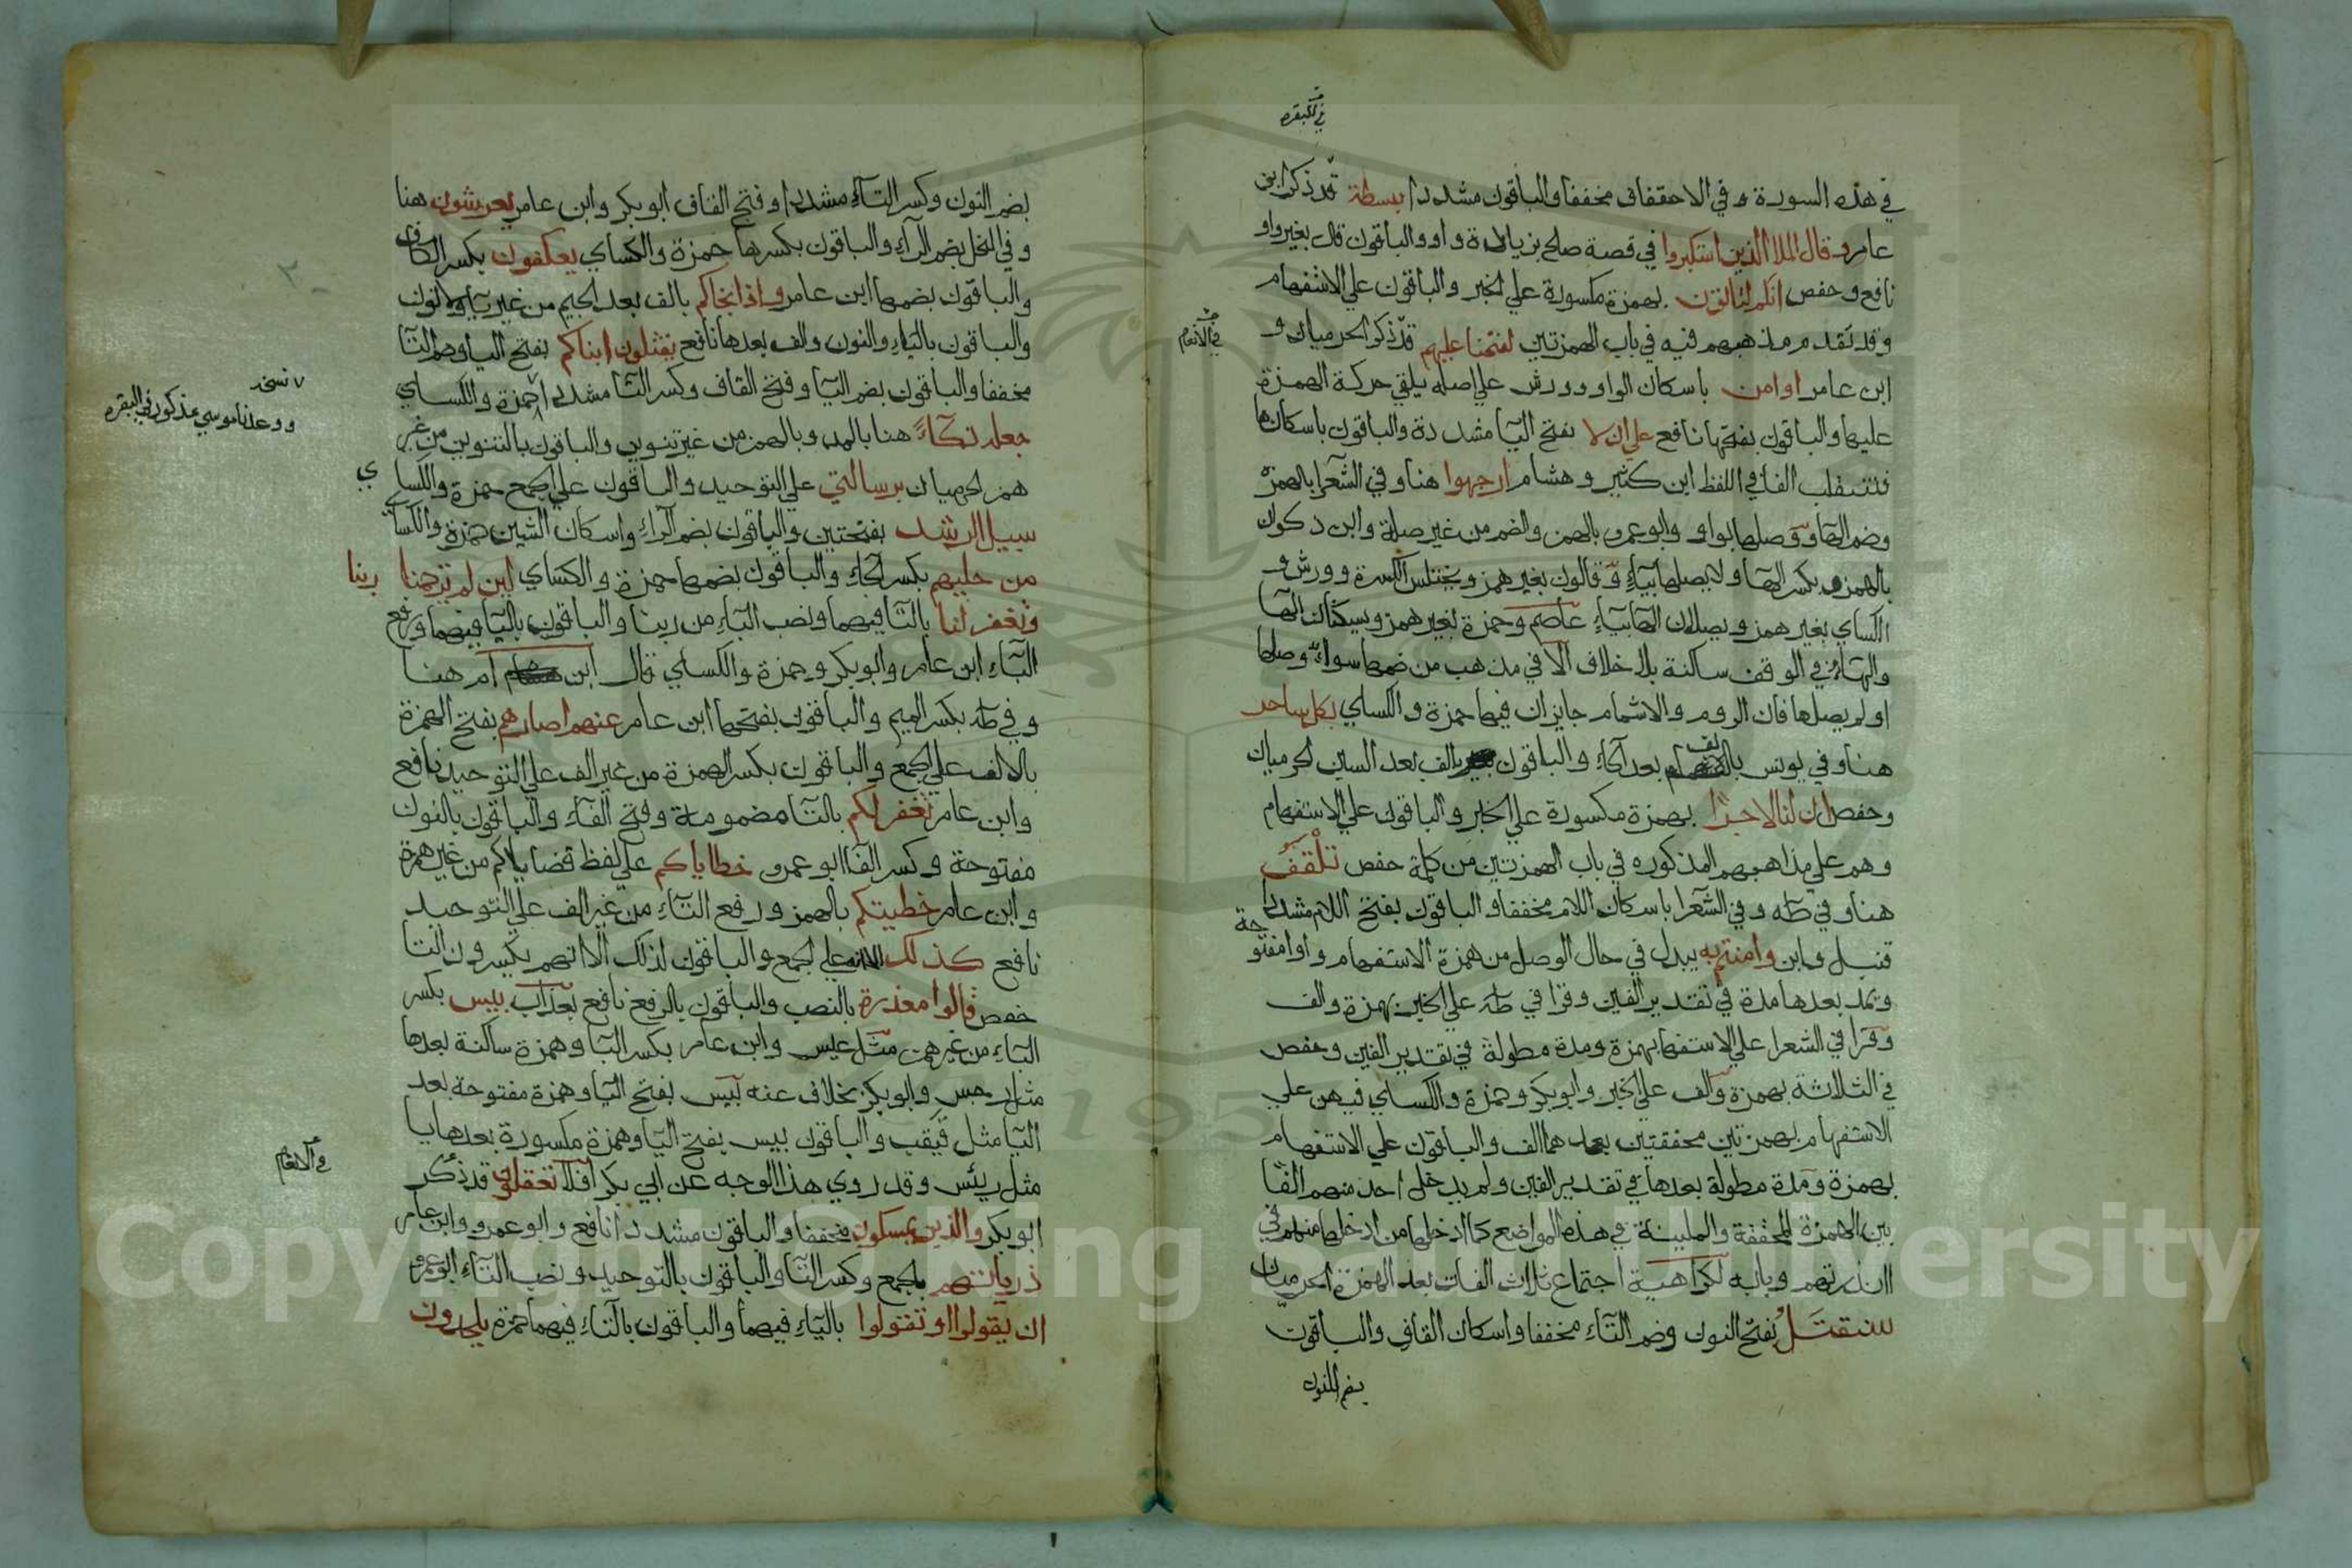 في البقرة
في هذه السورة و في الاحقاف مخففا والباقون مشددا بسطة قد ذكر ابن
عامر وقال الملا الذين استكبروا في قصة صلح بزيادة واو والباقون قال بغير واو
نافع وحفص انكم لتاتون بهمزة مكسورة علي الخبر والباقون علي الاستفهام
وقد تقدم مذهبهم فيه في باب الهمزتين لفتحنا عليهم قد ذكر الحرميان و
في الانعام
ابن عامر او امن باسكان الواو وورش علي اصله يلقي حركة الهمزة
عليها والباقون بفتحها نافع علي ان لا بفتح اليا مشددة والباقون باسكانها
فتنقلب الفا في اللفظ ابن كثير وهشام ارجهوا هنا وفي الشعرا بالهمزة
وضم الهاء ووصلها بواو وابو عمرو بالهمز والضم من غير صلة وابن ذكوان
بالهمز وبكسر الها ولا يصلها بياء وقالون بغير همز ويختلس الكسرة وورش و
الكساي بغير همز ويصلان الها بياء عاصم وحمزة بغير همز ويسكنان الها
والهاء في الوقف ساكنة بلا خلاف الا في مذهب من ضمها سواء وصلها
او لم يصلها فان الروم والاشمام جايزان فيها حمزة والكساي بكل ساحر
هنا وفي يونس بالالف بعد الحاء والباقون بالف بعد السين الحرميان
وحفص ان لنا لاجرا بهمزة مكسورة علي الخبر والباقون علي الاستفهام
وهم علي مذاهبهم المذكوره في باب الهمزتين من كلمة حفص تلقف
هنا وفي طه وفي الشعرا باسكان اللام مخففا والباقون بفتح اللام مشددا
قنبل وامنتم به يبدل في حال الوصل من همزة الاستفهام واوا مفتوحة
ويمد بعدها مدة في تقدير الفين وقرا في طه علي الخبر بهمزة والف
وقرا في الشعرا علي الاستفهام بهمزة ومدة مطولة في تقدير الفين وحفص
في الثلاثة بهمزة والف علي الخبر وابو بكر وحمزة والكساي فيهن علي
الاستفهام بهمزتين محققتين بعدهما الف والباقون علي الاستفهام
بهمزة ومدة مطولة بعدها في تقدير الفين ولم يدخل احد منهم الفا
بين الهمزة المحققة والملينة في هذه المواضع كما ادخلها من ادخلها منهم في
اانذرتهم وبابه لكراهية اجتماع ثلاث الفات بعد الهمزة الحرميان
سنقتل بفتح النون وضم التاء مخففا واسكان القاف والباقون
بضم النون
بضم النون وكسر التاء مشددا وفتح القاف ابو بكر وابن عامر يعرشون هنا
وفي النحل بضم الراء والباقون بكسرها حمزة والكساي يعكفون بكسر الكاف
والباقون بضمها ابن عامر واذ انجاكم بالف بعد الجيم من غير ياء ولا نون
والباقون بالياء والنون والف بعدها نافع يقتلون ابناكم بفتح اليا وضم التا
مخففا والباقون بضم اليا وفتح القاف وكسر التا مشددا حمزة والكساي
نسخه
ووعدنا موسي مذكور في البقره
جعله دكاء هنا بالمد وبالهمز من غير تنوين والباقون بالتنوين من غير
همز الحرميان برسالتي علي التوحيد والباقون علي الجمع حمزة والكساي
سبيل الرشد بفتحتين والباقون بضم الراء واسكان الشين حمزة والكساي
من حليهم بكسر الحاء والباقون بضمها حمزة والكساي لين لم ترحمنا ربنا
وتغفر لنا بالتا فيهما ونصب الباء من ربنا والباقون باليا فيهما ورفع
الباء ابن عامر وابو بكر وحمزة والكساي قال ابن ام هنا
وفي طه بكسر الميم والباقون بفتحها ابن عامر عنهم اصارهم بفتح الهمزة
بالالف علي الجمع والباقون بكسر الهمزة من غير الف علي التوحيد نافع
وابن عامر تغفر لكم بالتا مضمومة وفتح الفاء والباقون بالنون
مفتوحة وكسر الفا ابو عمرو خطاياكم علي لفظ قضاياكم من غير همزة
وابن عامر خطيتكم بالهمز ورفع التاء من غير الف علي التوحيد
نافع كذلك علي الجمع والباقون لذلك الا انهم يكسرون التا
حفص قالوا معذرة بالنصب والباقون بالرفع نافع بعذاب بيس بكسر
الباء من غير همز مثل عيس وابن عامر بكسر البا وهمزة ساكنة بعدها
مثل رجس وابو بكر بخلاف عنه بيس بفتح البا وهمزة مفتوحة بعد
اليا مثل فيقب والباقون بيس بفتح اليا وهمزة مكسورة بعدها يا
مثل رئس وقد روي هذا الوجه عن ابي بكر افلا تعقلون قد ذكر
في الانعام
ابو بكر والذين يمسكون مخففا والباقون مشددا نافع وابو عمرو وابن عامر
ذرياتهم بالجمع وكسر التا والباقون بالتوحيد ونصب التاء ابو عمرو
ان يقولوا او تقولوا بالياء فيهما والباقون بالتاء فيهما حمزة يلحدون
Copyright © King Saud University
195